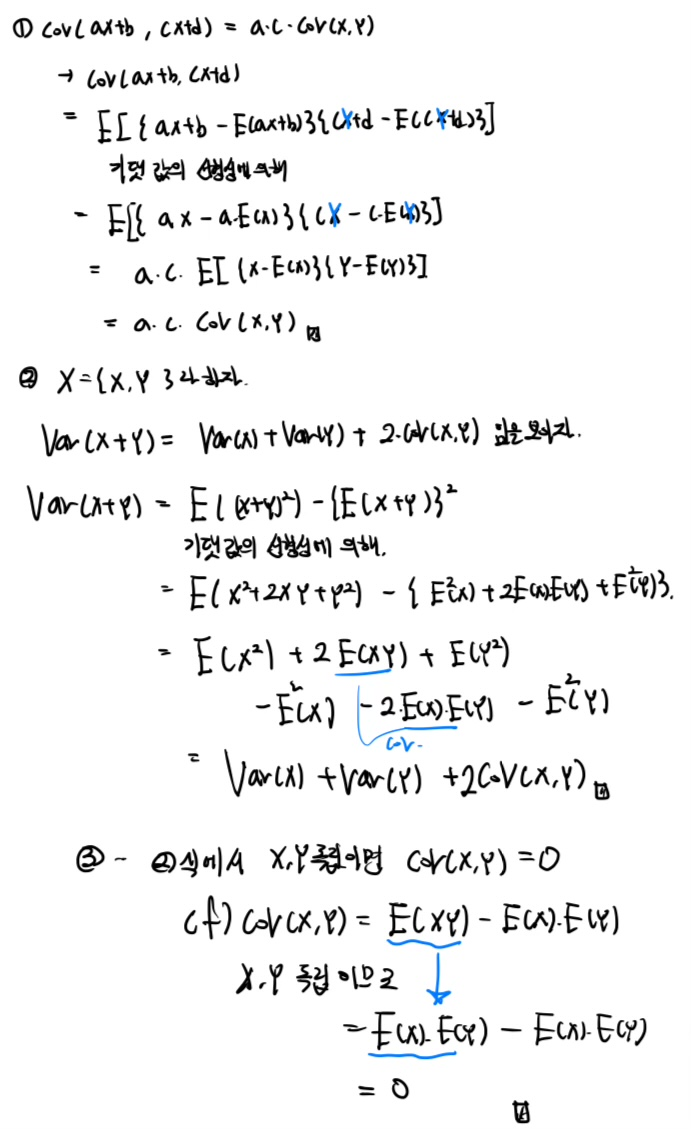 ① Cov(ax+b, cx+d) = a·c·Cov(X,Y)
→ Cov(ax+b, cx+d)
= E[{ax+b - E(ax+b)}{cX+d - E(cX+d)}]
기댓값의 선형성에 의해
= E[{ax - a·E(x)}{cX - c·E(X)}]
= a·c· E[{x-E(x)}{Y-E(Y)}]
= a·c· Cov(X,Y)
② X={X,Y}라 하자.
Var(X+Y) = Var(x)+Var(Y) + 2·Cov(X,Y) 임을 보이자.
Var(X+Y) = E((X+Y)²) - {E(X+Y)}²
기댓값의 선형성에 의해.
= E(X²+2XY+Y²) - {E²(x)+2E(x)E(Y)+E²(Y)}.
= E(X²) + 2E(XY) + E(Y²)
-E²(X) -2·E(x)·E(Y) - E²(Y)
Cov.
= Var(X) + Var(Y) + 2Cov(X,Y)
③ - ②식에서 X,Y독립이면 Cov(X,Y) = 0
cf) Cov(X,Y) = E(XY) - E(X)·E(Y)
X,Y 독립이므로
= E(X)·E(Y) - E(X)·E(Y)
= 0